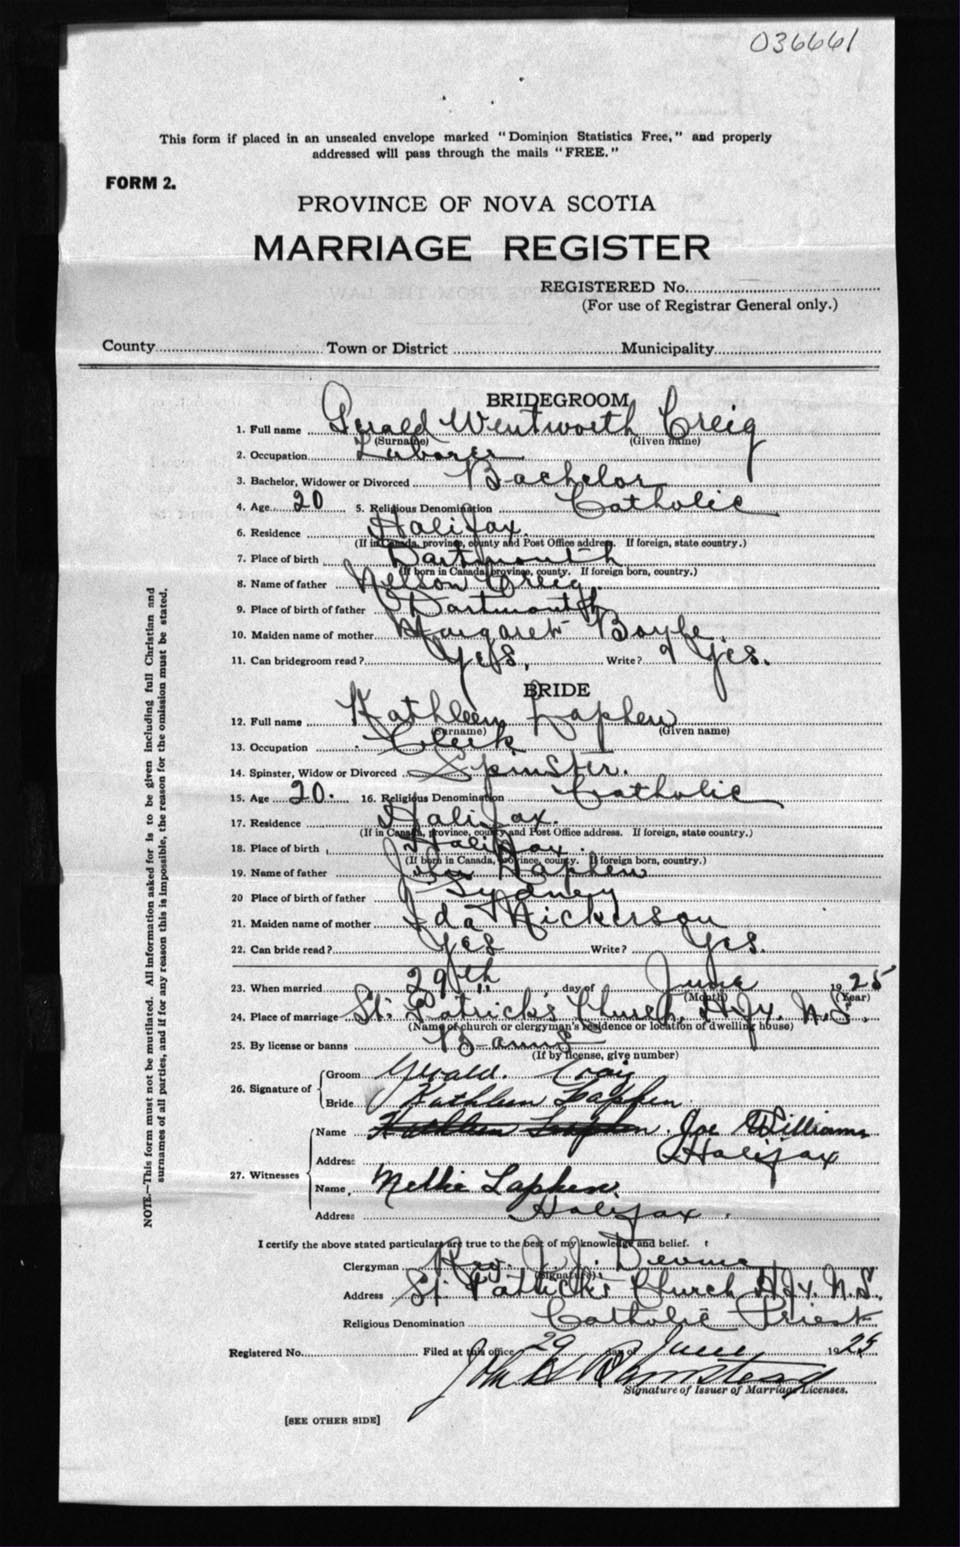 036661
This form if placed in an unsealed envelope marked "Dominion Statistics Free," and properly
addressed will pass through the mails "FREE."
FORM 2.
PROVINCE OF NOVA SCOTIA
MARRIAGE REGISTER
REGISTERED No.
(For use of Registrar General only.)
County Town or District Municipality
BRIDEGROOM
1. Full name Gerald Wentworth Creig
(Surname) (Given name)
2. Occupation Laborer
3. Bachelor, Widower or Divorced Bachelor
4. Age 20 5. Religious Denomination Catholic
6. Residence Halifax.
(If in Canada, province, county and Post Office address. If foreign, state country.)
7. Place of birth Dartmouth
(If born in Canada, province, county. If foreign born, country.)
8. Name of father Nelson Creig.
9. Place of birth of father Dartmouth
10. Maiden name of mother Margaret Boyle.
11. Can bridegroom read? Yes, Write? Yes.
BRIDE
12. Full name Kathleen Laphen
(Surname) (Given name)
13. Occupation Clerk
14. Spinster, Widow or Divorced Spinster.
15. Age 20. 16. Religious Denomination Catholic
17. Residence Halifax.
(If in Canada, province, county and Post Office address. If foreign, state country.)
18. Place of birth Halifax.
(If born in Canada, province, county. If foreign born, country.)
19. Name of father John Laphen
20 Place of birth of father Sydney
21. Maiden name of mother Ida Nickerson
22. Can bride read? Yes Write? Yes.
23. When married 29th day of June 1925
(Month) (Year)
24. Place of marriage St. Patrick's Church, Hfx. N.S.
(Name of church or clergyman's residence or location of dwelling house)
25. By license or banns Banns
(If by license, give number)
26. Signature of
Groom Gerald. Craig
Bride Kathleen Laphen
27. Witnesses
Name Kathleen Laphen. Joe Williams
Address Halifax
Name, Nellie Laphen.
Address Halifax.
I certify the above stated particulars are true to the best of my knowledge and belief.
Clergyman Rev. J. J. Devine
(Signature)
Address St. Patrick's Church Hfx. N.S.
Religious Denomination Catholic Priest
Registered No. Filed at this office 29 day of June 1925
John B
Signature of Issuer of Marriage Licenses.
[SEE OTHER SIDE]
NOTE.—This form must not be mutilated. All information asked for is to be given including full Christian and
surnames of all parties, and if for any reason this is impossible, the reason for the omission must be stated.